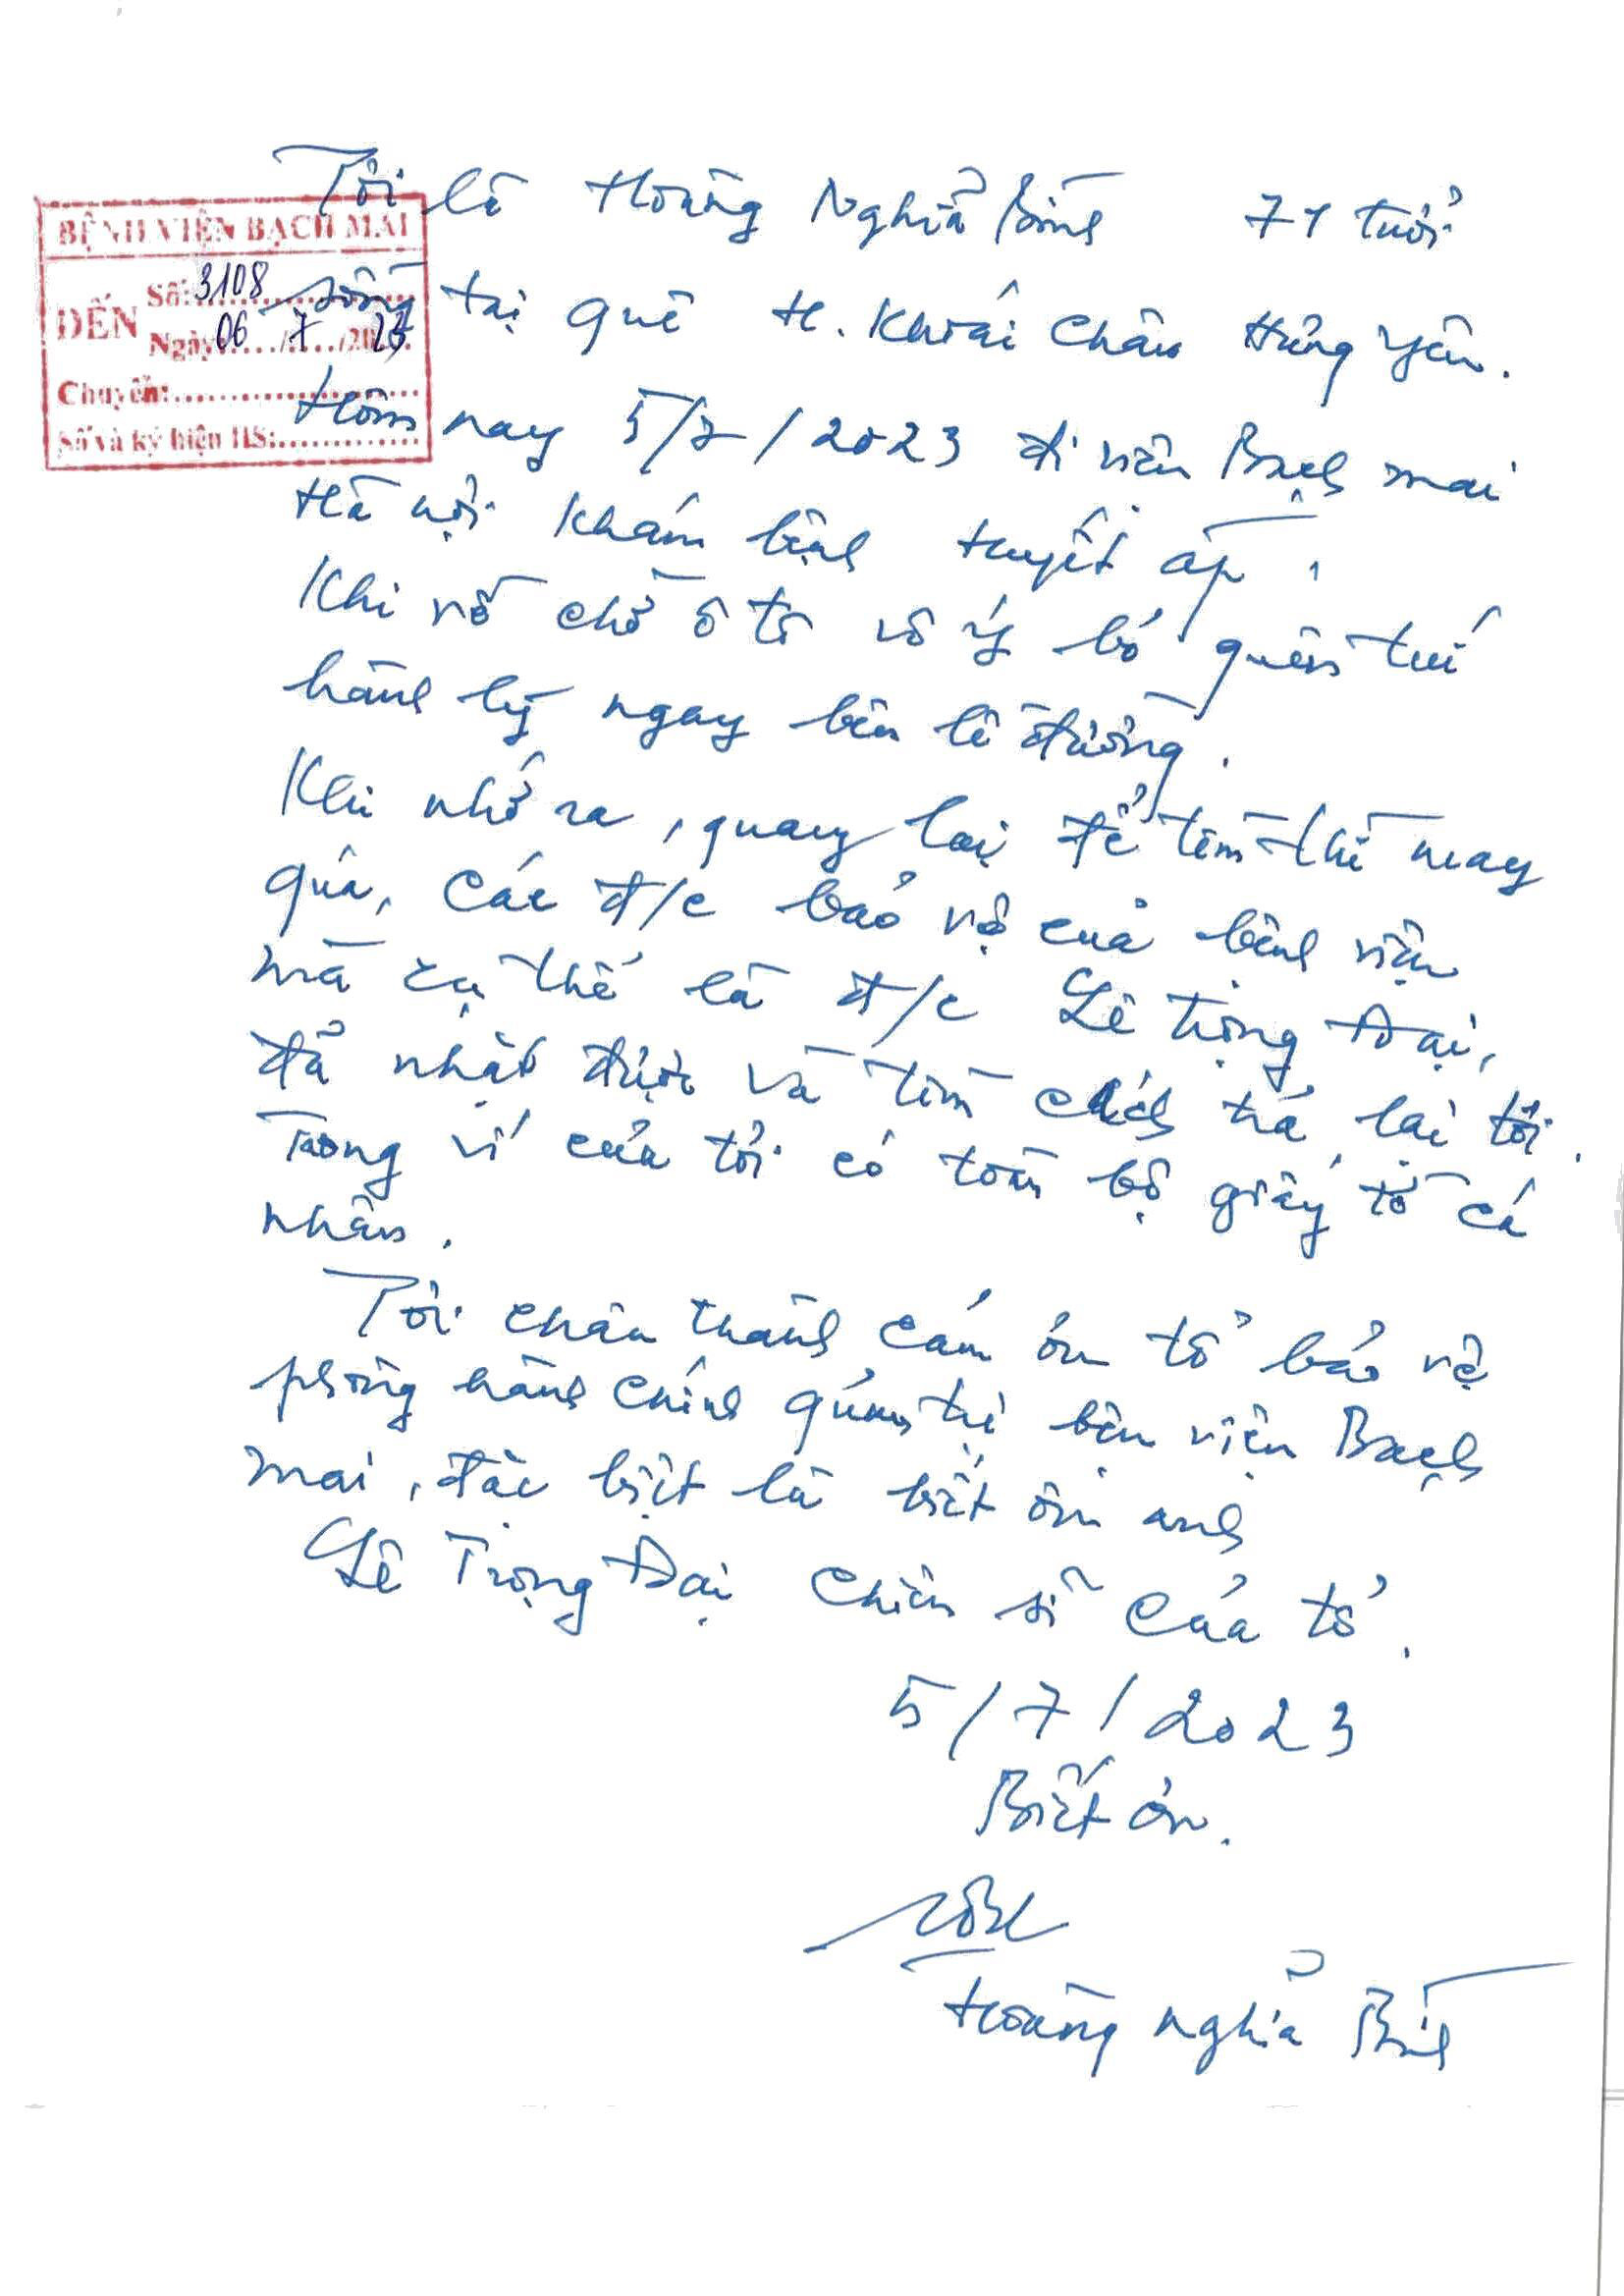 Tôi là Hoàng Nghĩa Bình 71 tuổi
BỆNH VIỆN BẠCH MAI
ĐẾN
Số: 3108
Ngày: 06/7/2023
Chuyển:
Số và ký hiệu HS:
sống tại quê H. Khoái Châu Hưng Yên.
Hôm nay 5/7/2023 đi viện Bạch mai
Hà nội khám bệnh huyết áp,
Khi vợ chờ ô tô vô ý bỏ quên túi
hành lý ngay bên lề đường.
Khi nhớ ra, quay lại để tìm thì may
quá, các đ/c bảo vệ của bệnh viện
mà cụ thể là đ/c Lê Trọng Đại,
đã nhặt được và tìm cách trả lại tôi.
Trong ví của tôi có toàn bộ giấy tờ cá
nhân.
Tôi chân thành cám ơn tổ bảo vệ
phòng hành chính quản trị bệnh viện Bạch
mai, đặc biệt là biết ơn anh
Lê Trọng Đại chiến sĩ của tổ.
5/7/2023
Biết ơn.
Hoàng Nghĩa Bình